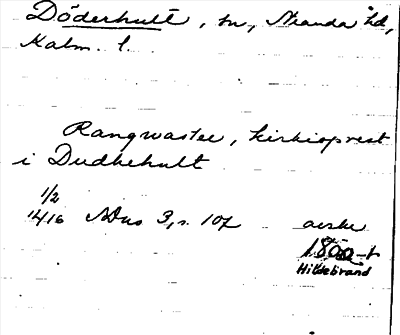 Döderhult, sn, Stranda hd,
Kalm. l.
Rangwastee, kirkioprest
i Dudhehult
1/2
1416 SDns 3, s. 107 avskr
1800-t
Hildebrand